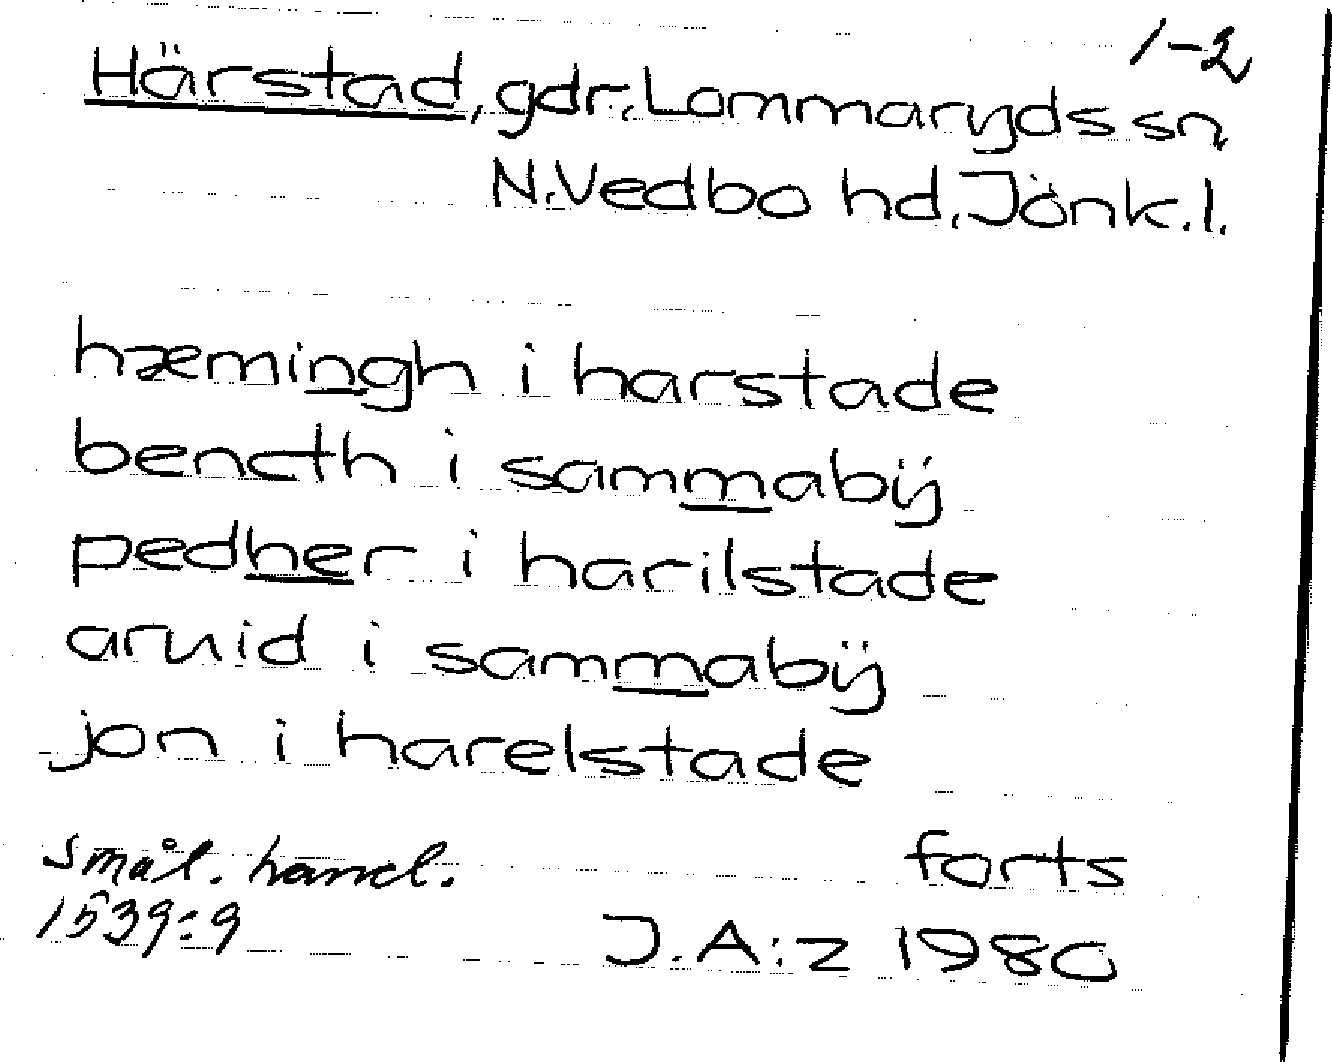 1-2
Härstad, gdr, Lommaryds sn,
N. Vedbo hd, Jönk. l.
hæmingh i harstade
bencth i sammabÿ
pedher i harilstade
aruid i sammabÿ
jon i harelstade
Smål. handl. forts
1539:9 J.A:z 1980